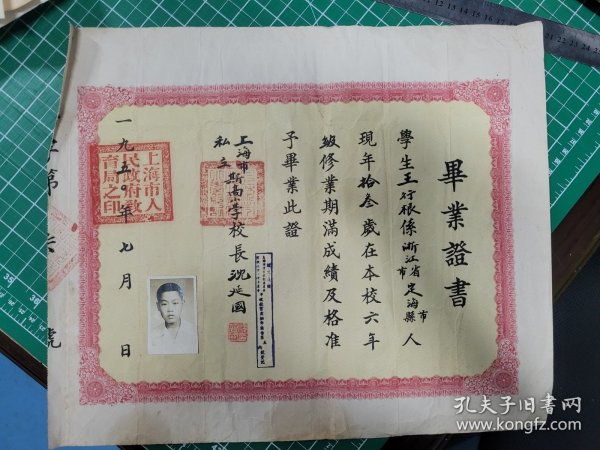 畢業證書
學生王行根係浙江省定海縣市人
市
現年拾叁歲在本校六年
級修業期滿成績及格准
予畢業此證
上海市
私立斯高小學校長沈延國
一九五〇年七月 日
上海市人
民政府教
育局之印
字第 号
孔夫子旧书网
www.kongfz.com